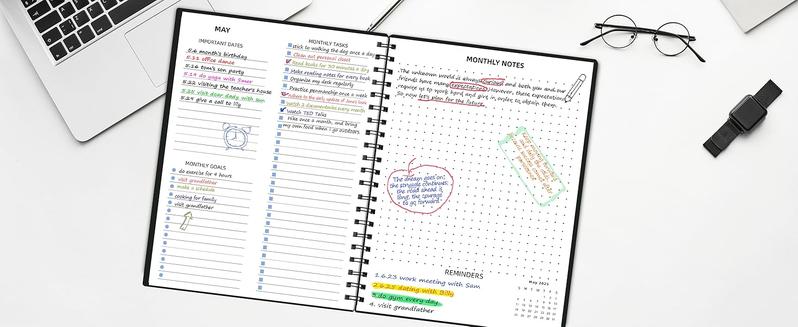 MAY
IMPORTANT DATES
5.6 month's birthday
5.11 office dance
5.16 tom's son party
5.19 do yoga with Samer
5.22 visiting the teacher's house
5.25 visit dear dady with son
5.29 give a call to lily
MONTHLY GOALS
do exercise for 4 hours
visit grandfather
make a schedule
cooking for family
visit grandfather
MONTHLY TASKS
stick to walking the dog once a day
Clean out personal closet
Read books for 30 minutes a day
Make reading notes for every book
Organize my desk regularly
Practice penmanship once a week
Watch 2 documentaries every month
Watch TED Talks
Hike once a month, and bring
my own food when I go outdoors
MONTHLY NOTES
The unknown world is always curious and both you and our
friends have many expectations. However, these expectations
require us to work hard and give in order to obtain them.
So now let's plan for the future.
The dream goes on,
the struggle continues,
the road ahead is
long, the courage
to go forward.
REMINDERS
1.6.23 work meeting with Sam
2.6.25 dating with Billy
3.do gym every day
4. visit grandfather
May 2025